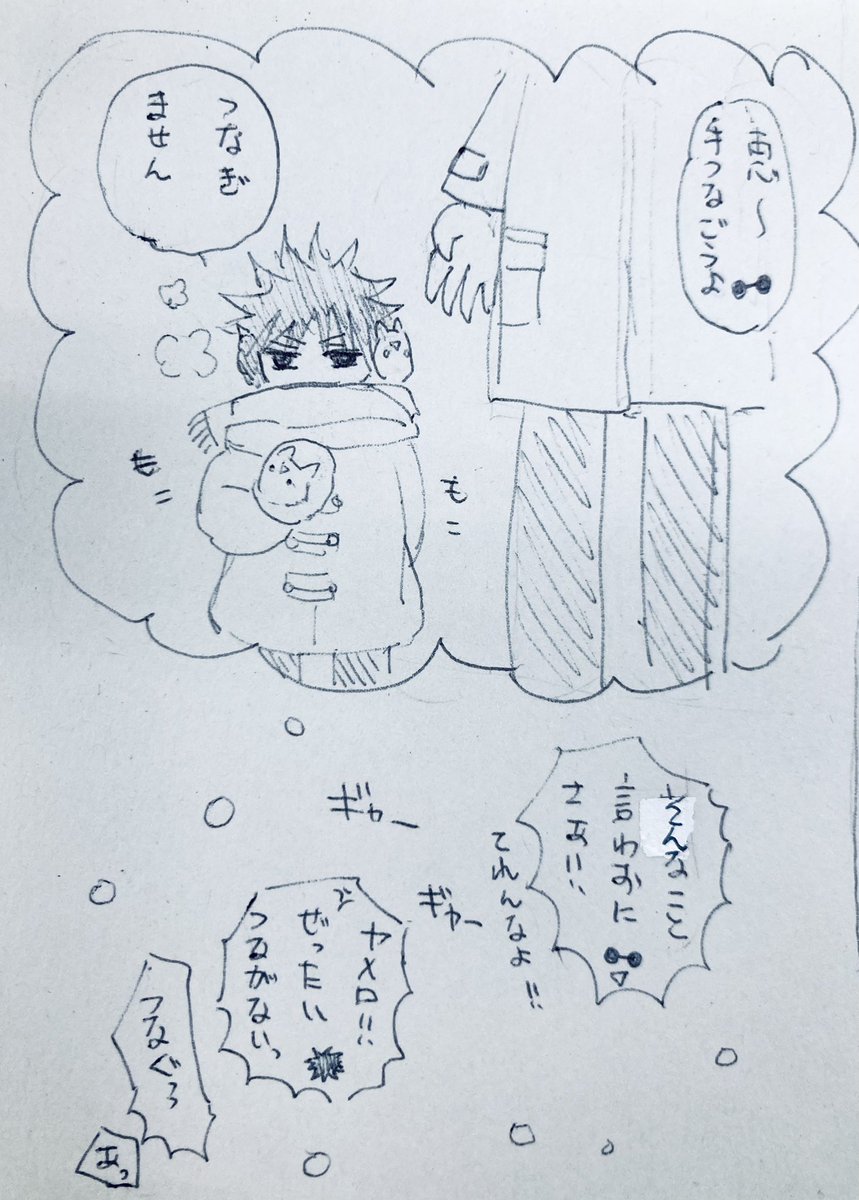 恵〜
手つなごうよ
つなぎ
ません
もこ
もこ
そんなこと
言わずに
さぁ!!
てれんなよ!!
ギャー
ギャー
ヤメロ!!
ぜったい
つながないっ
つなぐぅ
あっ